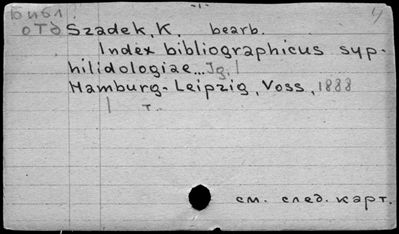 Библ.
отд Szadek, K. bearb.
Index bibliographicus syp-
hilidologiae... Jg. 1
Hamburg-Leipzig, Voss, 1888
1 т.
см. след. карт.